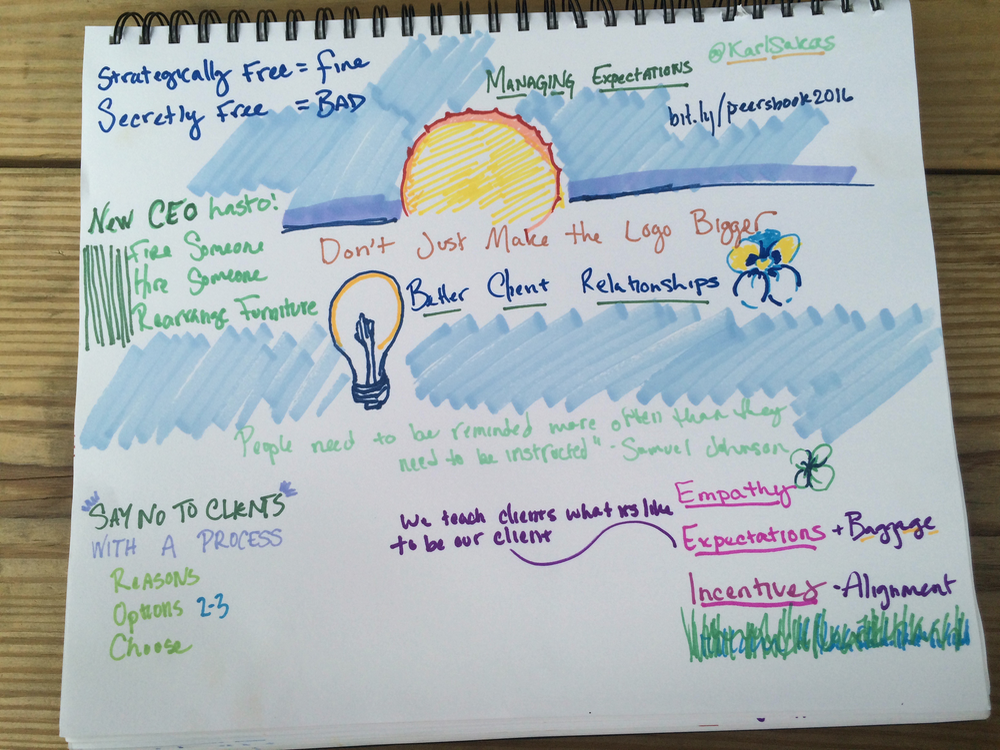 Strategically Free = fine
Secretly Free = BAD
MANAGING EXPECTATIONS
@KarlSakas
bit.ly/peersbook2016
New CEO has to!
Fire Someone
Hire Someone
Rearrange Furniture
Don't Just Make the Logo Bigger
Better Client Relationships
People need to be reminded more often than they
need to be instructed" - Samuel Johnson
"SAY NO TO CLIENTS"
WITH A PROCESS
Reasons
Options 2-3
Choose
We teach clients what its like
to be our client
Empathy
Expectations + Baggage
Incentives - Alignment